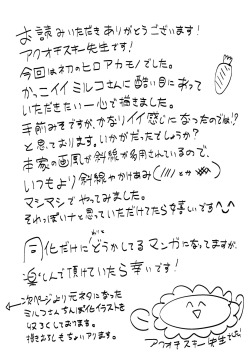 お読みいただきありがとうございます!
アクオチスキー先生です!
今回は初のヒロアカモノでした。
かっこイイミルコさんに酷い目にあって
いただきたい一心で描きました。
手前みそですが、かなりイイ感じになったのでは!?
と思ております。いかがだったでしょうか?
本家の画風が斜線が多用されているので、
いつもより斜線やかけあみ
マシマシでやってみました。
それっぽいナと思っていただけてたら嬉しいです
同化だけにどうかしてるマンガになってますが、
楽しんで頂けていたら幸いです!
次ページより元ネタになった
ミルコさんちんぽ化イラストを
収ろくしております。
描きおろしもちょいアリます。
アクオチスキー先生でした